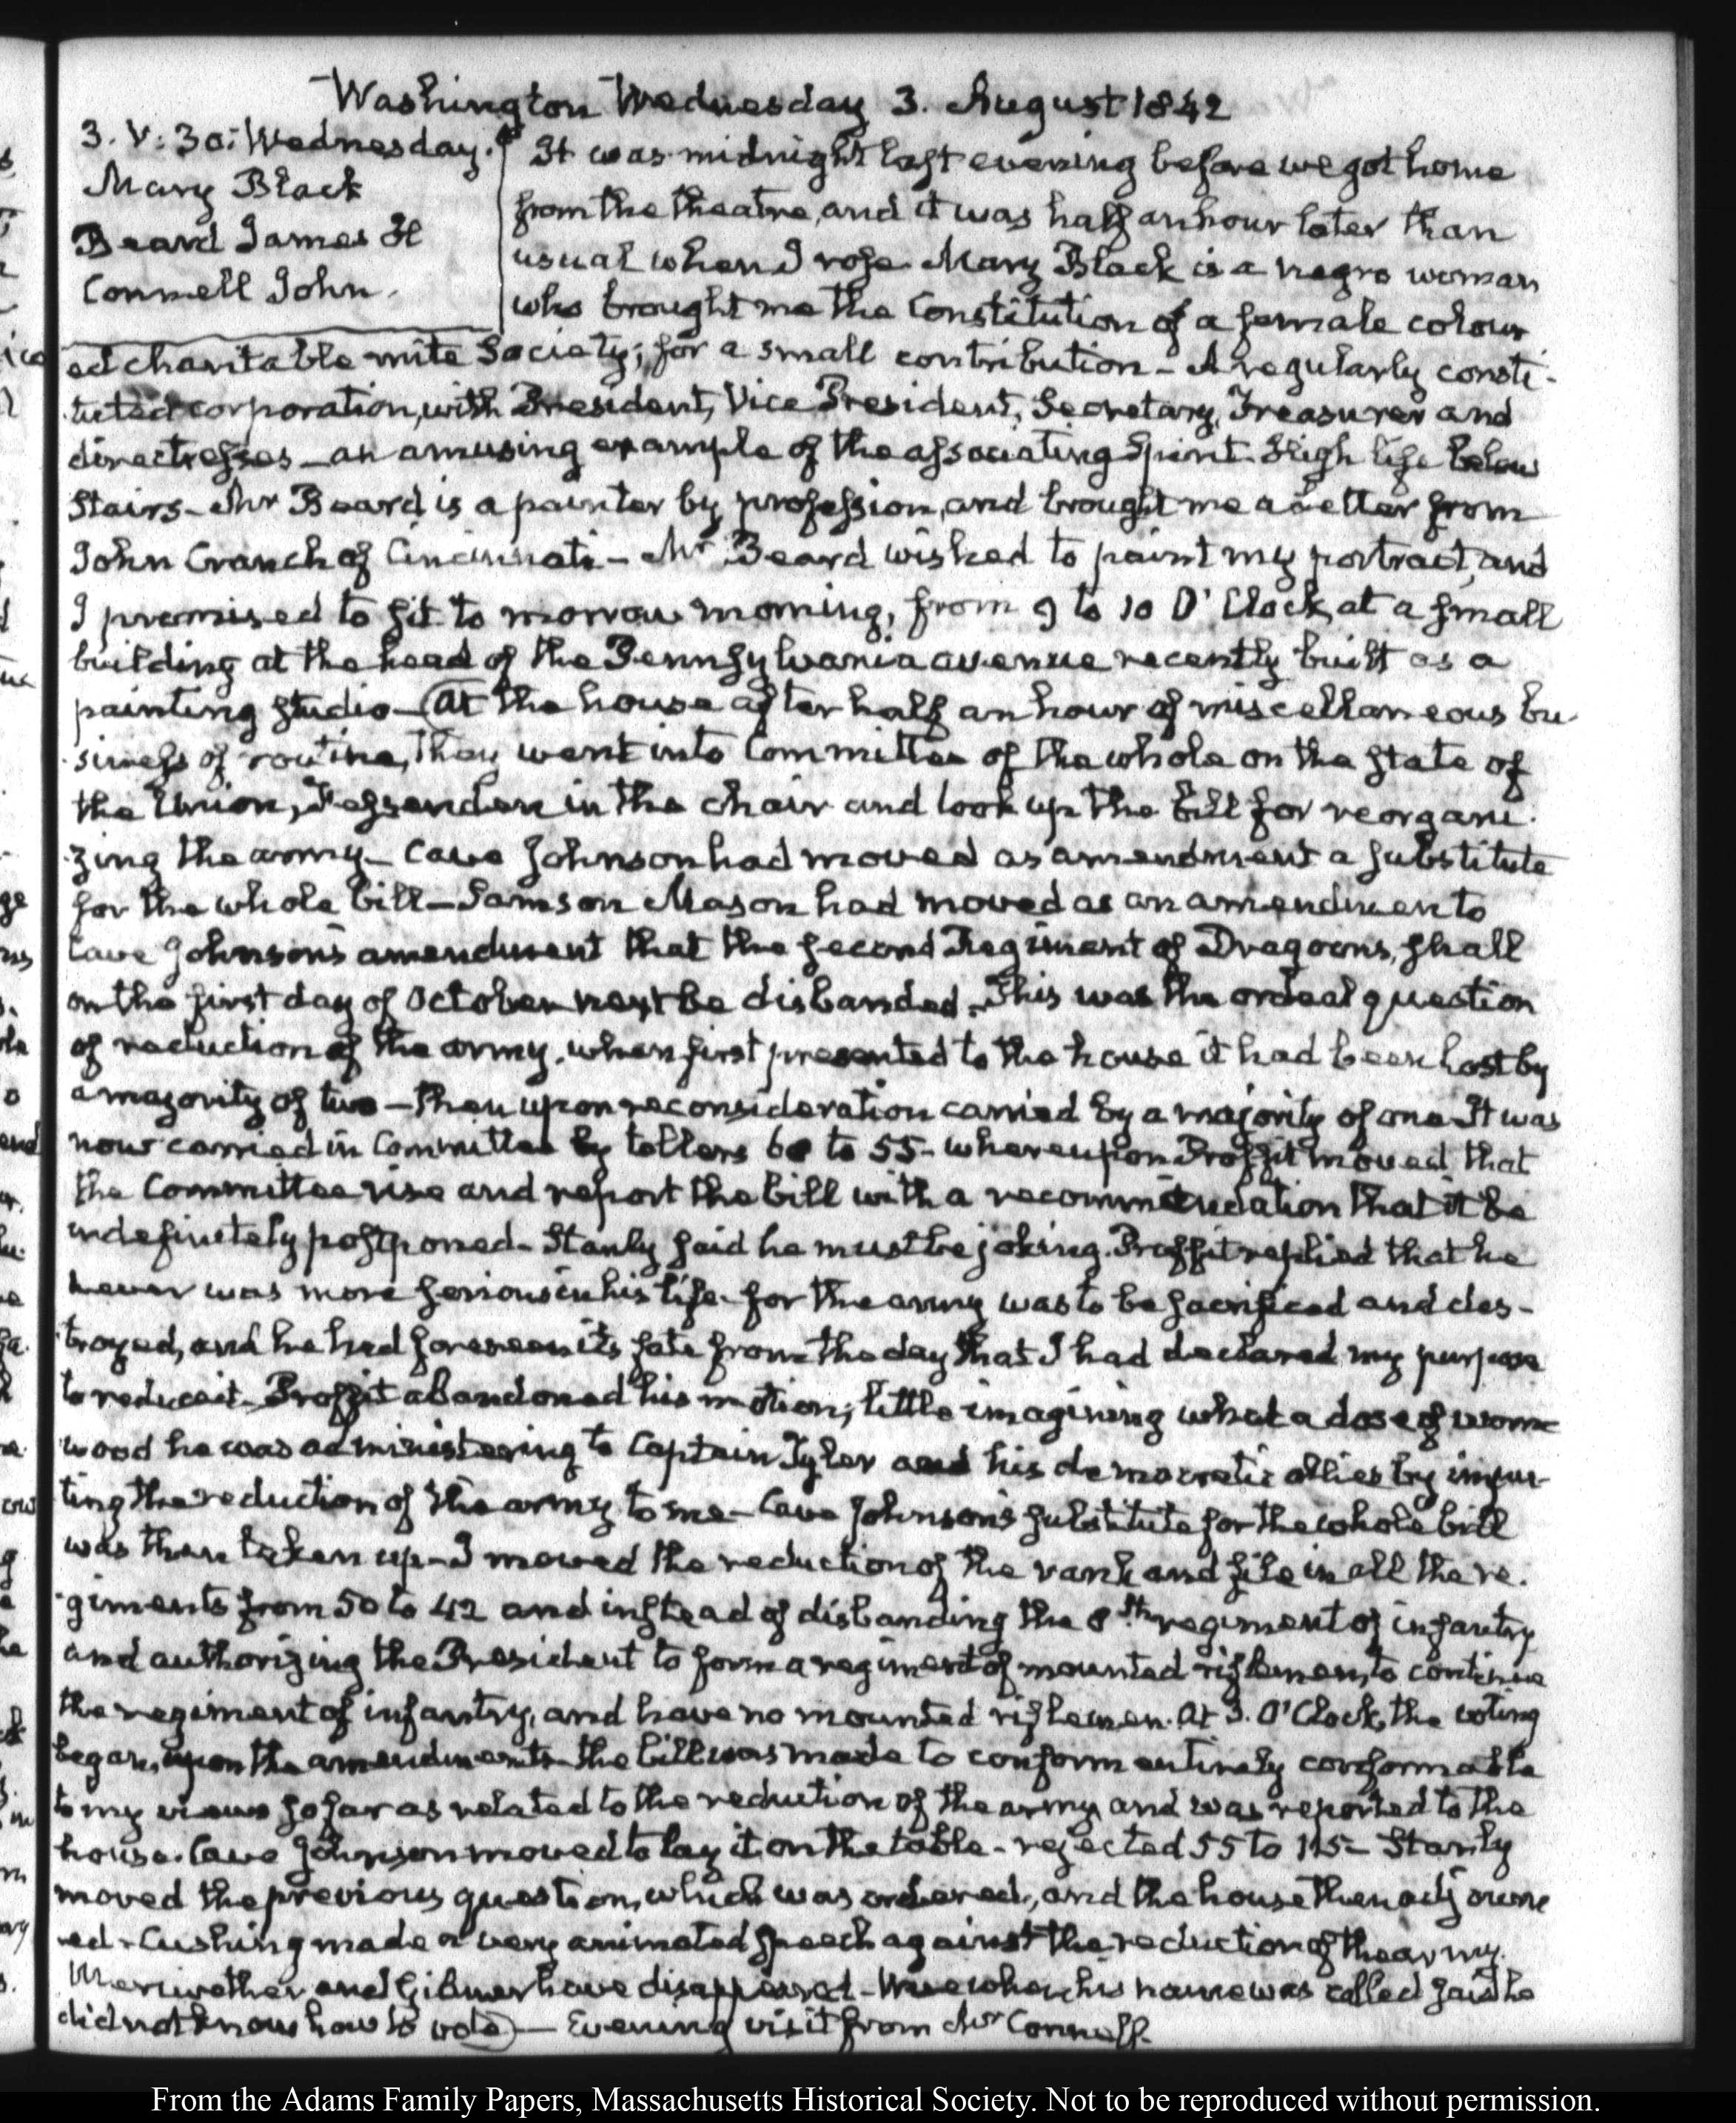 Washington Wednesday 3. August 1842
3. V: 30. Wednesday.
Mary Black
Beard James H
Connell John.
It was midnight last evening before we got home
from the theatre, and it was half an hour later than
usual when I rose. Mary Black is a negro woman
who brought me the Constitution of a female colour
ed charitable mite Society; for a small contribution - A regularly consti-
tuted corporation, with President, Vice President, Secretary, Treasurer and
directresses - an amusing example of the associating Spirit. High life below
Stairs - Mr Beard is a painter by profession, and brought me a Letter from
John Cranch of Cincinnati - Mr Beard wished to paint my portrait, and
I promised to sit to morrow morning, from 9 to 10 O'Clock, at a small
building at the head of the Pennsylvania avenue recently built as a
painting studio - (At the house after half an hour of miscellaneous bu-
siness of routine, they went into Committee of the whole on the state of
the Union, Fessenden in the chair and took up the bill for reorgani-
zing the army - Cave Johnson had moved as amendment a substitute
for the whole bill - Samson Mason had moved as an amendment to
Cave Johnson's amendment that the second Regiment of Dragoons, shall
on the first day of October next be disbanded. This was the ordeal question
of reduction of the army. when first presented to the house it had been lost by
a majority of two - Then upon reconsideration carried by a majority of one It was
now carried in Committee by tellers 60 to 55 - whereupon Proffit moved that
the Committee rise and report the bill with a recommendation that it be
indefinitely postponed - Stanly said he must be joking. Proffit replied that he
never was more serious in his life - for the army was to be sacrificed and des-
troyed, and he had foreseen its fate from the day that I had declared my purpose
to reduce it - Proffit abandoned his motion; little imagining what a dose of worm
wood he was administering to Captain Tyler and his democratic allies by impu-
ting the reduction of the army to me - Cave Johnson's substitute for the whole bill
was then taken up - I moved the reduction of the rank and file in all the re-
giments from 50 to 42 and instead of disbanding the 8th regiment of infantry
and authorizing the President to form a regiment of mounted riflemen, to continue
the regiment of infantry, and have no mounted riflemen. At 3. O'Clock, the voting
began, upon the amendments - the bill was made to conform entirely conformable
to my views so far as related to the reduction of the army and was reported to the
house. Cave Johnson moved to lay it on the table - rejected 55 to 115 - Stanly
moved the previous question, which was ordered, and the house then adjourn
ed - Cushing made a very animated speech against the reduction of the army.
Meriwether and Gilmer have disappeared - Wise when his name was called said he
did not know how to vote) - Evening visit from Mr Connell.
From the Adams Family Papers, Massachusetts Historical Society. Not to be reproduced without permission.